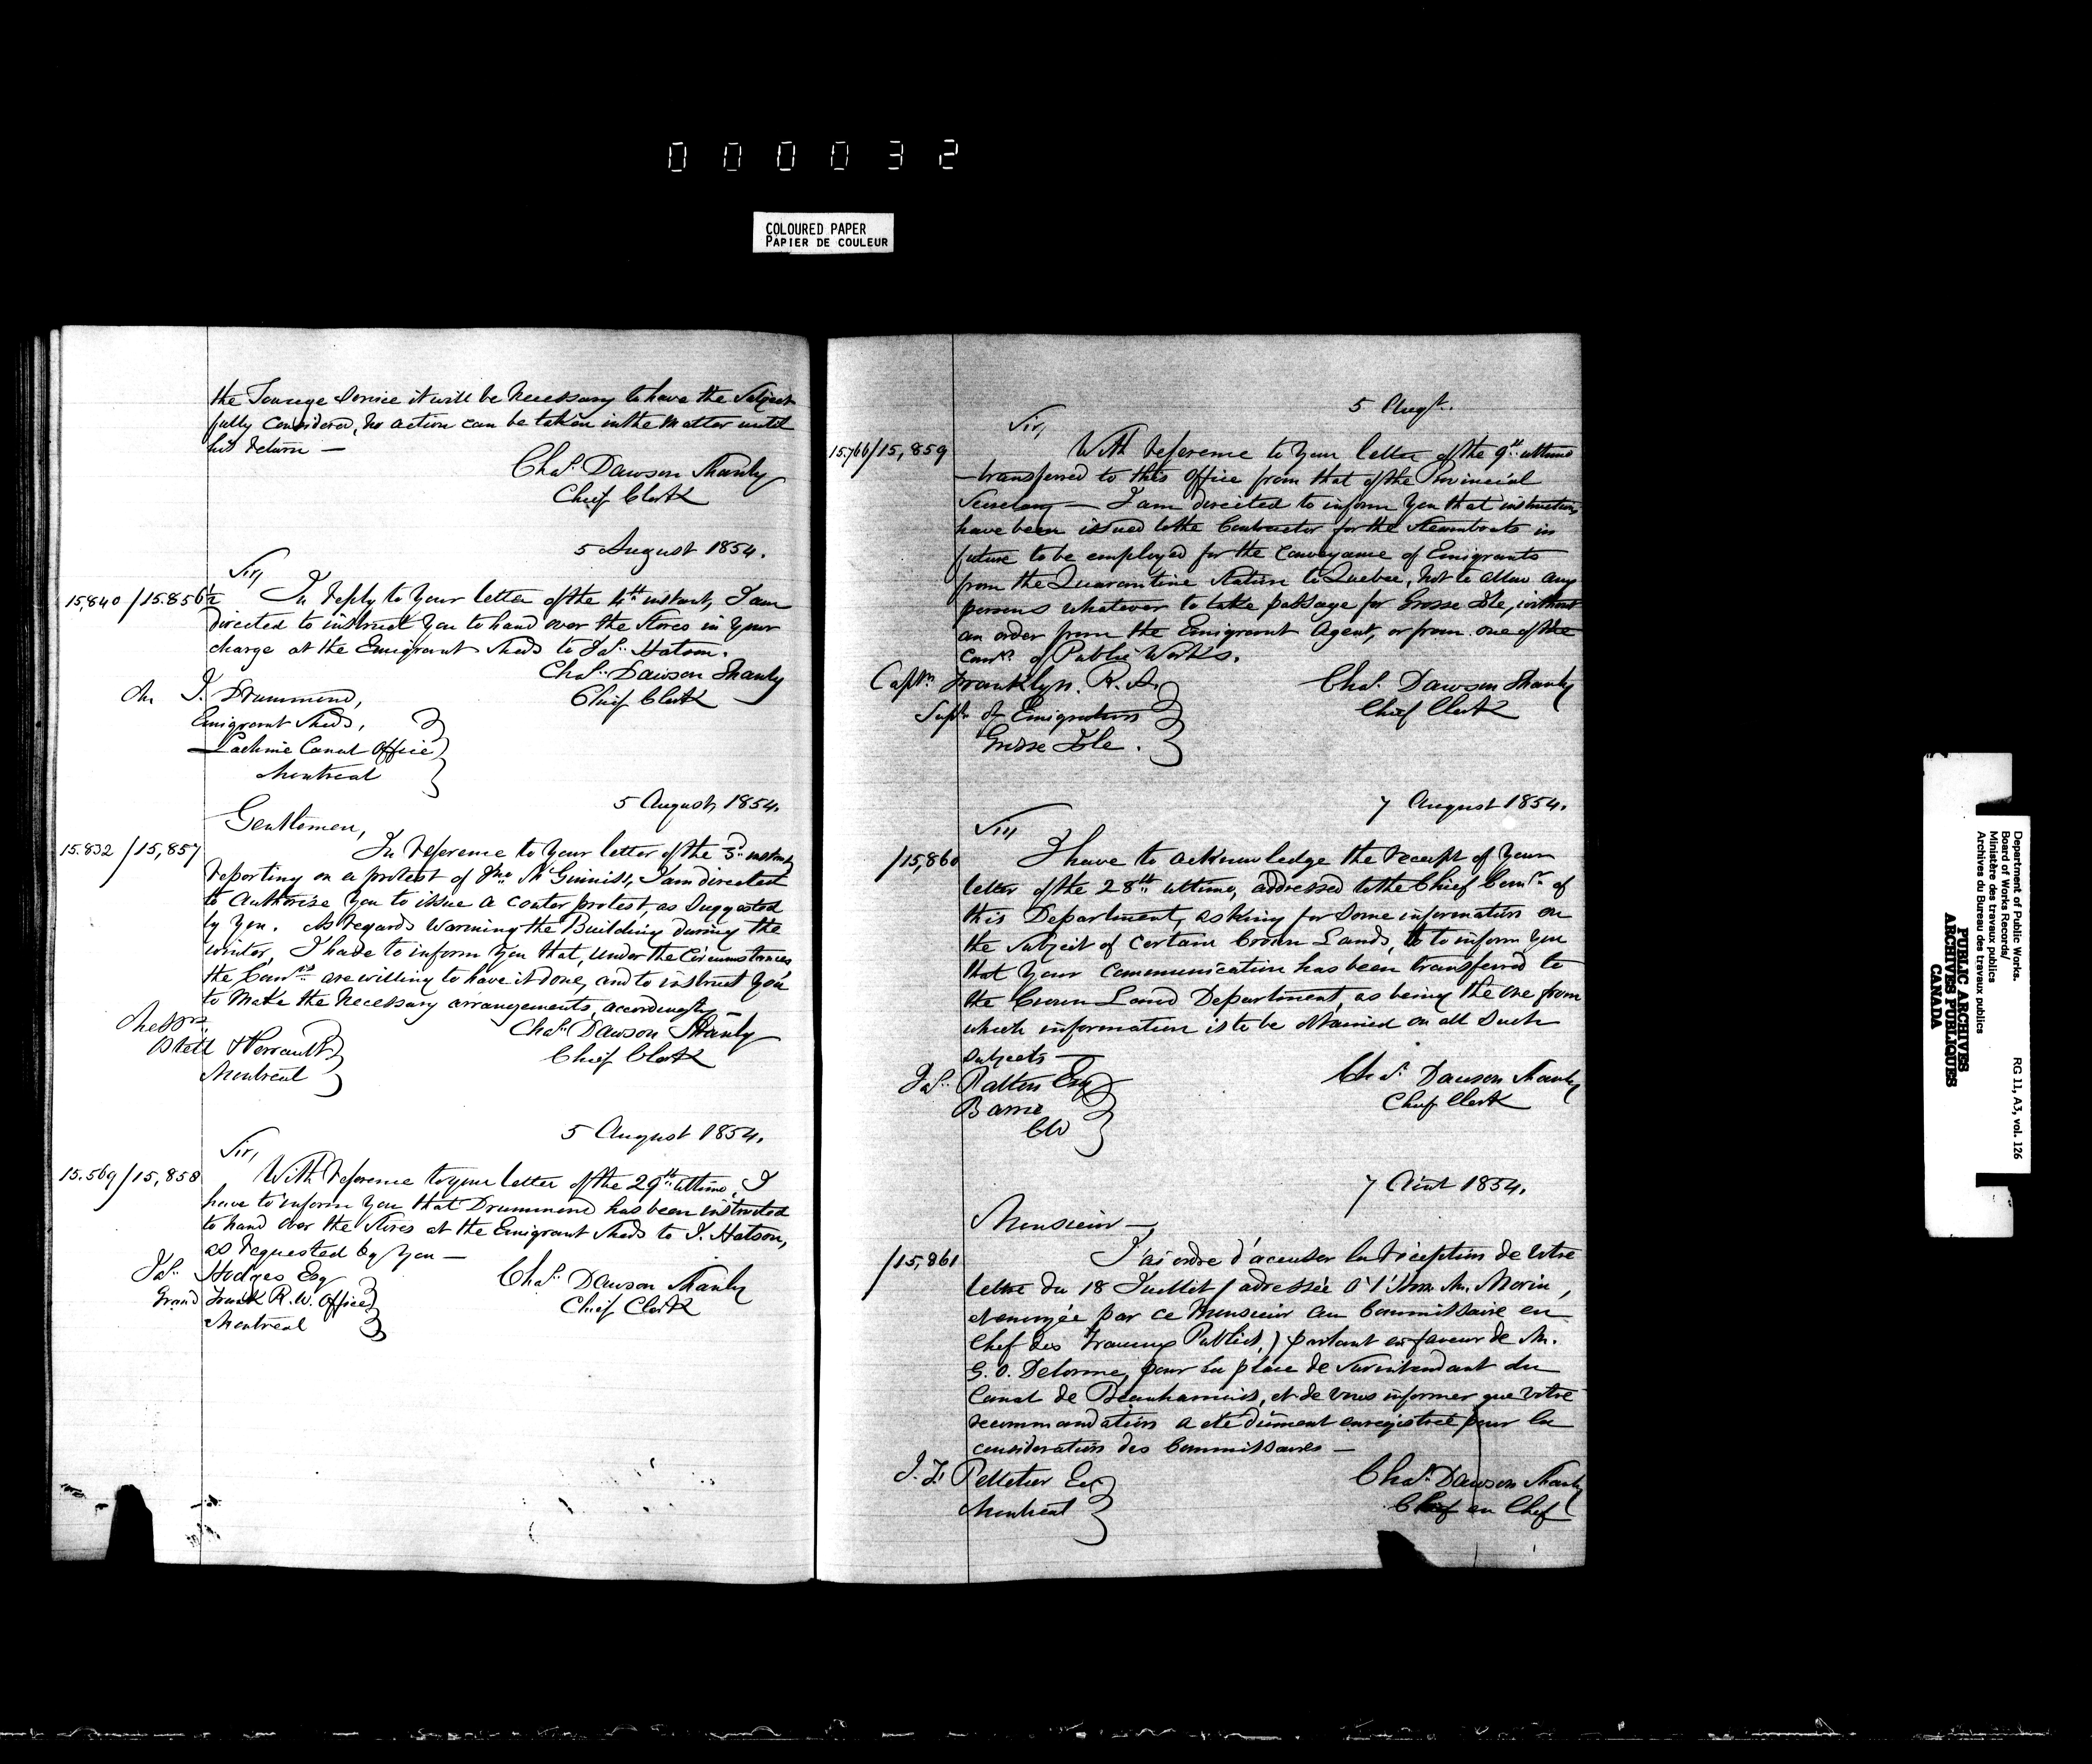 000032
COLOURED PAPER
PAPIER DE COULEUR
the Towage Service it will be necessary to have the Subject
fully considered, no action can be taken in the matter until
his return —
Chas. Dawson Shanly
Chief Clerk
5 August 1854.
Sir,
15,840 / 15.856½ In reply to your letter of the 4th instant, I am
directed to instruct you to hand over the Stores in your
charge at the Emigrant Sheds to Jas. Hatson.
Chas. Dawson Shanly
Chief Clerk
Mr J. Drummond,
Emigrant Sheds,
Lachine Canal Office
Montreal
5 August, 1854.
Gentlemen,
15.832 / 15,857 In reference to your letter of the 3d instant
reporting on a protest of Jno McGinnis, I am directed
to authorise you to issue a conter protest, as suggested
by you. As regards warming the Building during the
winter, I have to inform you that, under the circumstances
the Comrs are willing to have it done, and to instruct you
to make the necessary arrangements, accordingly —
Chas. Dawson Shanly
Chief Clerk
Messrs
& Perrault
Montreal
5 August 1854.
Sir,
15.569 / 15,858 With reference to your letter of the 29th ultimo, I
have to inform you that Drummond has been instructed
to hand over the Stores at the Emigrant Sheds to J. Hatson,
as requested by you —
Chas. Dawson Shanly
Chief Clerk
Jas. Hodges Esq
Grand Trunk R.W. Office
Montreal
5 Augt.
Sir,
15.766/15,859 With reference to your letter of the 9th ultimo
—transferred to this Office from that of the Provincial
Secretary — I am directed to inform you that instructions
have been issued to the Contractor for the Steamboats in
future to be employed for the conveyance of Emigrants
from the Quarantine Station to Quebec, not to allow any
persons whatever to take passage for Grosse Isle, without
an order from the Emigrant Agent, or from one of the
Comrs. of Public Works.
Chas. Dawson Shanly
Chief Clerk
Captn Franklyn. R.A.
Supt of Emigration
Grosse Isle.
7 August 1854.
Sir,
/15,860 I have to acknowledge the receipt of your
letter of the 28th ultimo, addressed to the Chief Comr. of
this Department, asking for some information on
the subject of certain Crown Lands, & to inform you
that your communication has been transferred to
the Crown Land Department, as being the one from
which information is to be obtained on all such
subjects —
Chas. Dawson Shanly
Chief Clerk
Jas. Patton Esq
Barrie
CW
7 Aout 1854.
Monsieur —
/15,861 J'ai ordre d'accuser la réception de votre
lettre du 18 Juillet (adressée à l'Hon. M. Morin,
et envoyée par ce Monsieur au Commissaire en
Chef des Travaux Publics,) portant en faveur de M.
G.O. Delorme, pour la place de Surintendant du
Canal de Beauharnois, et de vous informer que votre
recommandation a été dûment enregistrée pour la
considération des Commissaires —
Chas. Dawson Shanly
en Chef
Pelletier Ecr
Montreal
Department of Public Works.
Board of Works Records/
Ministère des travaux publics
Archives du Bureau des travaux publics
RG 11, A3, vol. 126
PUBLIC ARCHIVES
ARCHIVES PUBLIQUES
CANADA